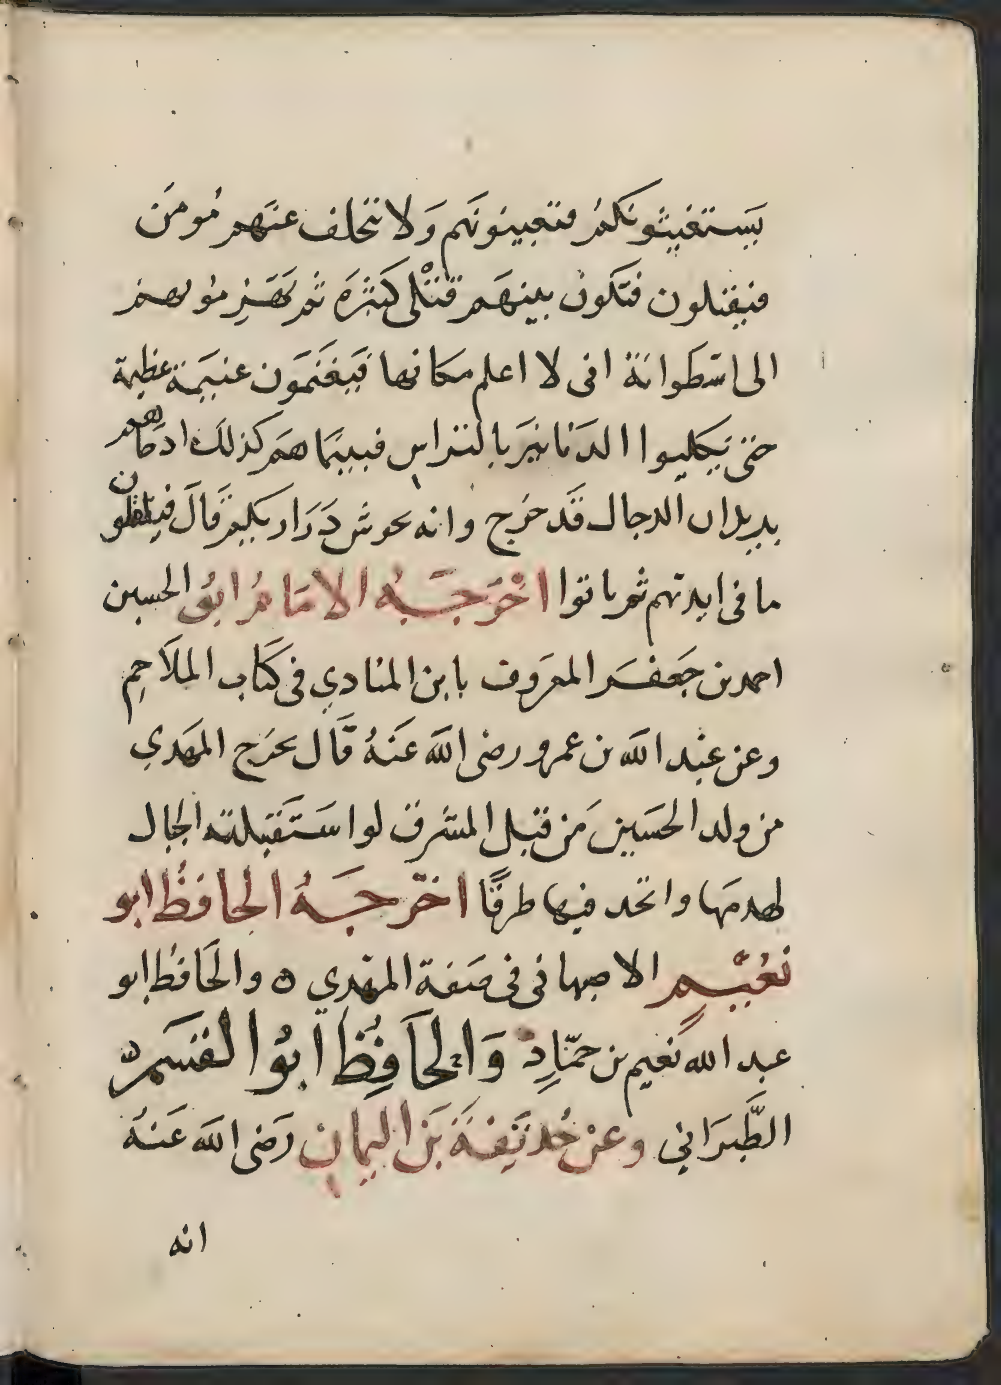 يستغيثونكم فتعينونهم ولا يتخلف عنهم مومن
فيقتلون فتكون بينهم قتلى كثيرة ثم يهزمونهم
الى اسطوانة انى لا اعلم مكانها فيغنمون غنيمة عظيمة
حتى يكيلوا الدنانير بالتراس فبينما هم كذلك اذ جاهم
بريد ان الدجال قد خرج وانه يحوش ذراريكم قال فيلقون
ما فى ايديهم ثم ياتوا اخرجه الامام ابو الحسين
احمد بن جعفر المعروف بابن المنادي فى كتاب الملاحم
وعن عبد الله بن عمرو رضى الله عنه قال يخرج المهدي
من ولد الحسين من قبل المشرق لو استقبلته الجبال
لهدمها واتخد فيها طرقا اخرجه الحافظ ابو
نعيم الاصبهانى فى صفة المهدي ه والحافظ ابو
عبد الله نعيم بن حماد والحافظ ابو القسم
الطبراني وعن حذيفة بن اليمان رضى الله عنه
انه